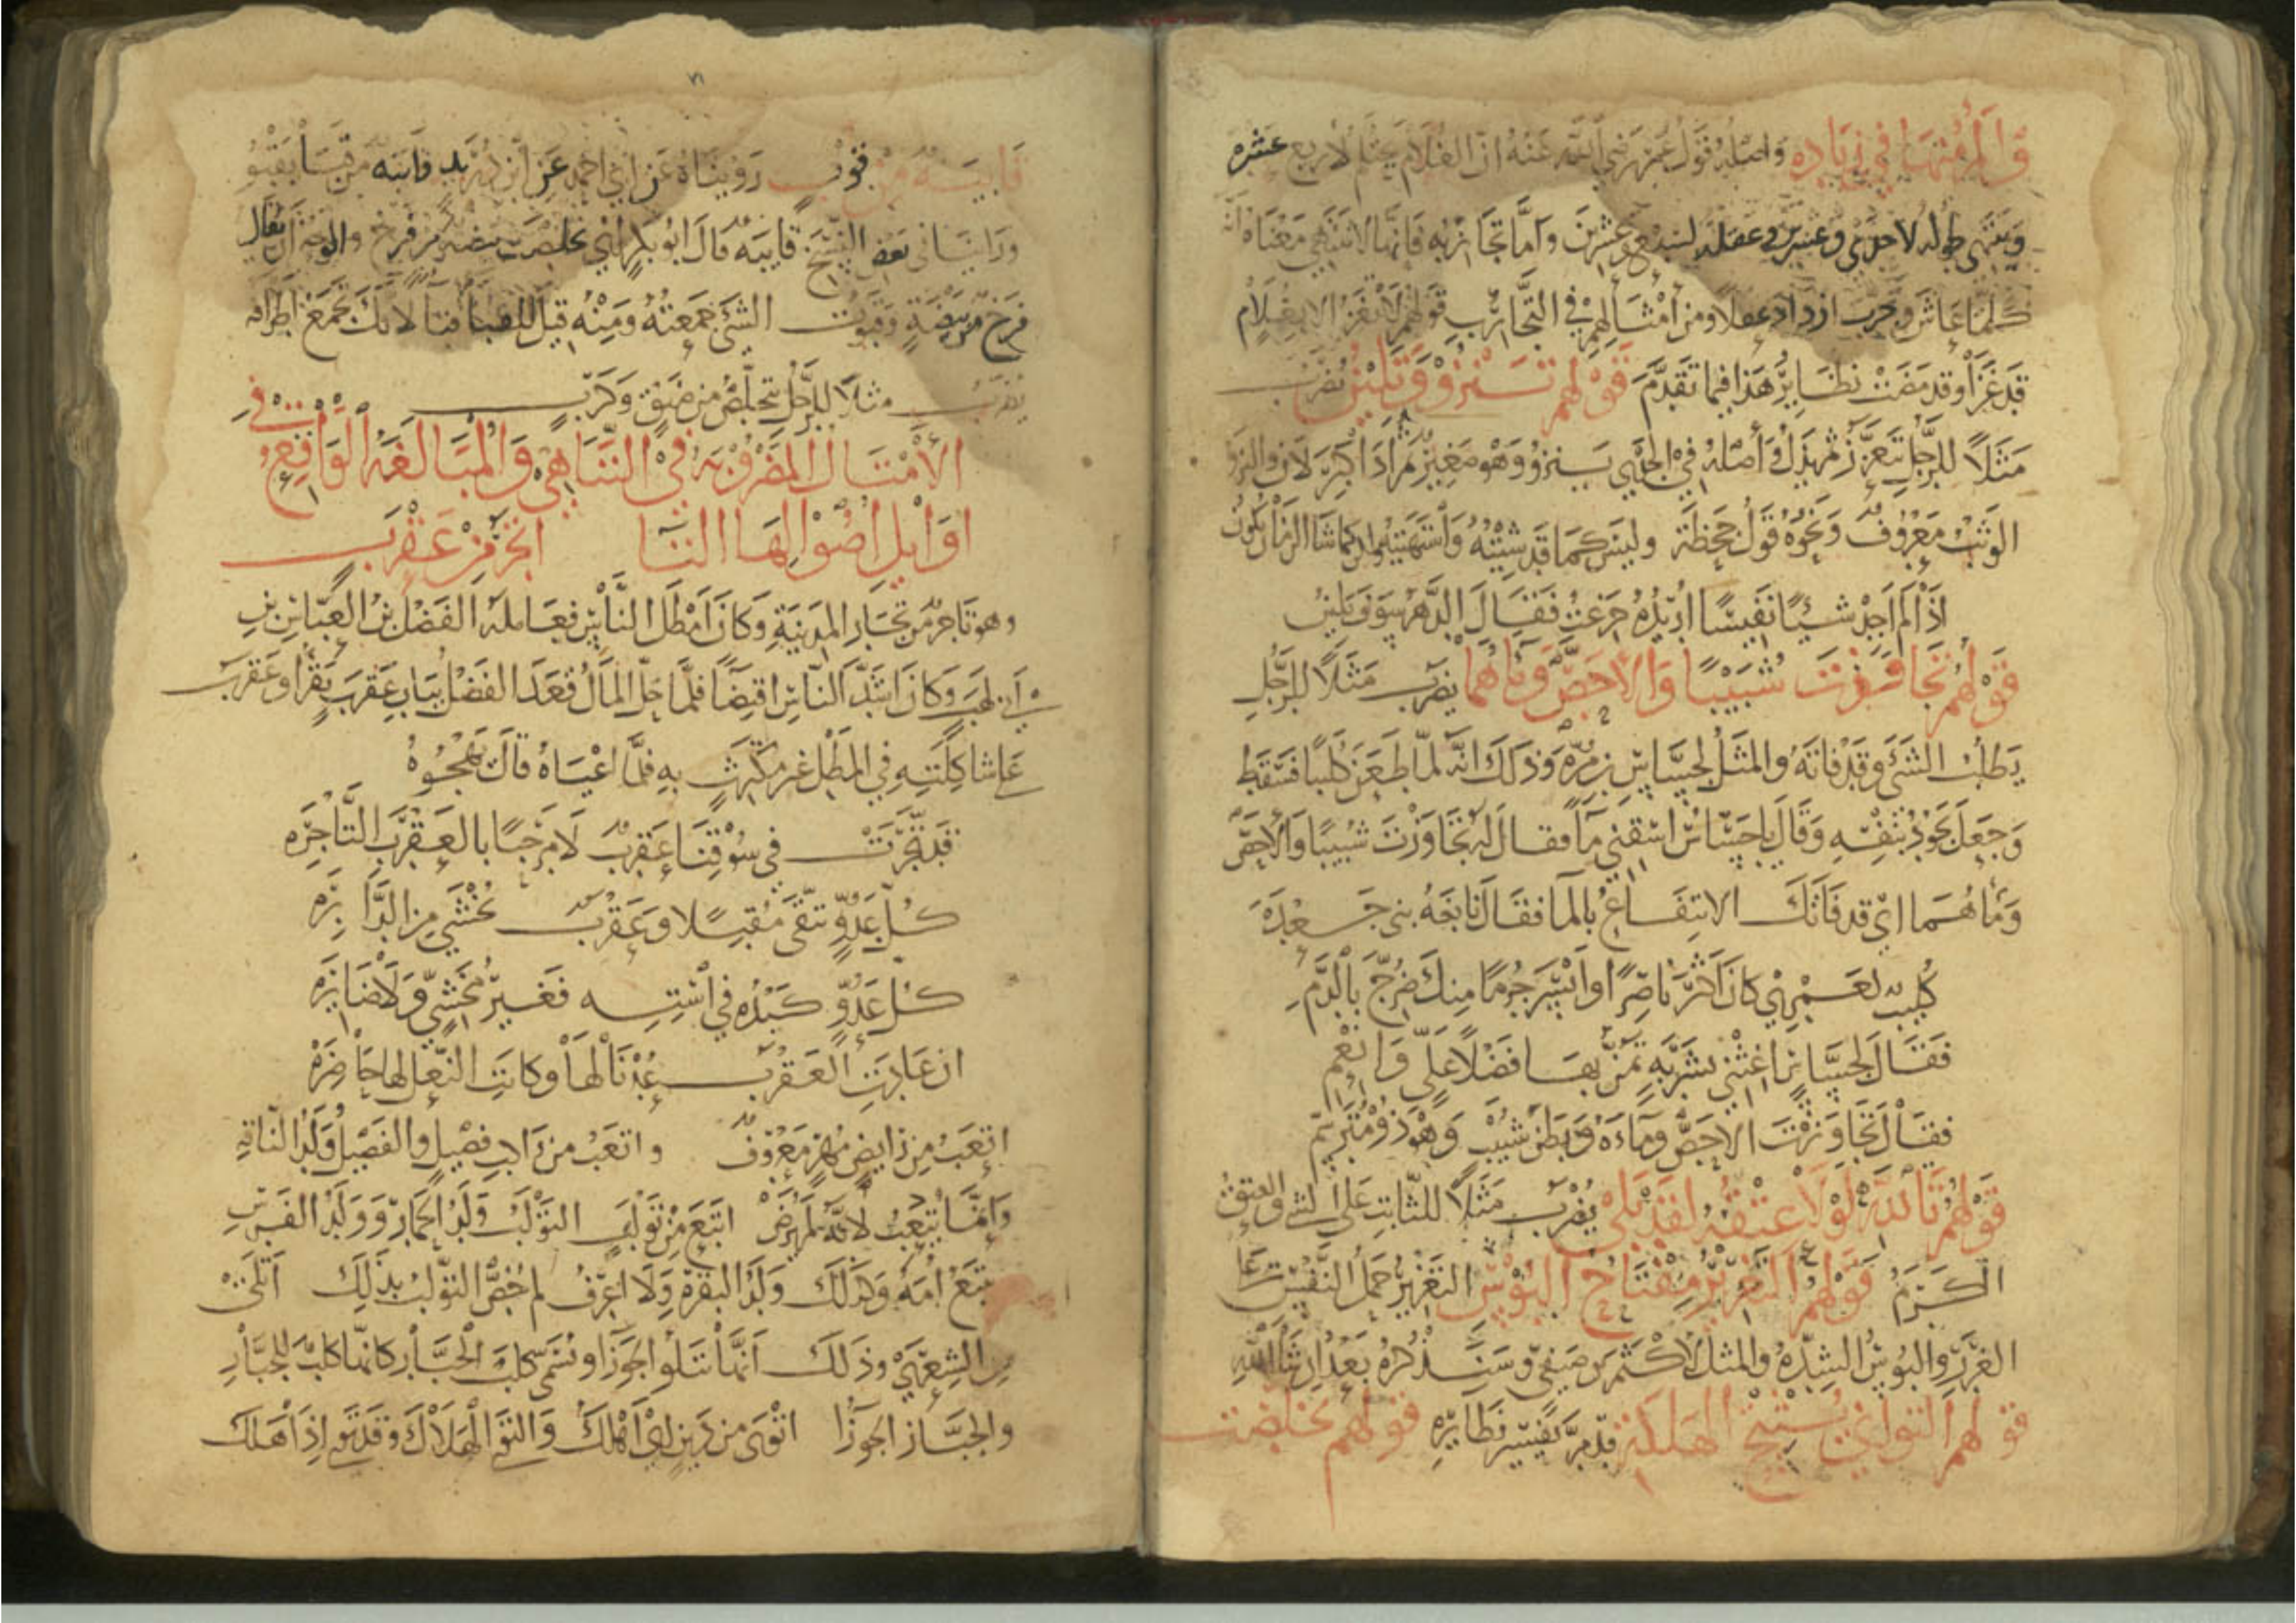 والمرء منها في زياده واصله قول عمر رضي الله عنه ان الغلام يحتلم لاربع عشره
وينتهي طوله لاحدي وعشرين وعقله لسبع وعشرين واما تجاربه فانها لا تنتهي معناه انه
كلما عاش وجرب ازداد عقلا ومن امثالهم في التجارب قولهم لا تغز الا بغلام
قد غزا وقد مضت نظاير هذا فيما تقدم قولهم تنزو وتلين يضرب
مثلا للرجل يتعزز ثم يذل واصله في الجدي ينزو وهو صغير ثم اذا كبر لان والنزو
الوثب معروف ونحوه قول جحظة وليس كما قد شيته واشتهيته ولكن كما شا الزمان يكون
اذا لم اجد شيئا نفيسا اريده جزعت فقال الدهر سوف تلين
قولهم تجاوزت شبيبا والاحص وماهما يضرب مثلا للرجل
يطلب الشئ وقد فاته والمثل لجساس بن مره وذلك انه لما طعن كليبا فسقط
وجعل يجود بنفسه وقال ياجساس اسقني ما فقال له تجاوزت شبيبا والاحص
وماهما اي قد فاتك الانتفاع بالما فقال نابغه بني جعده
كليب لعمري كان اكثر ناصرا وايسر جرما منك ضرج بالدم
فقال لجساس اغثني بشربه تمن بها فضلا علي وانعم
فقال تجاوزت الاحص وماءه وبطن شبيب وهو ذو مترسم
قولهم تالله لولا عتقه لقد بلي يضرب مثلا للثابت على الشي والعتق
الكرم قولهم التغرير مفتاح البوس التغرير حمل النفس على
الغرر والبوس الشده والمثل لاكثم بن صيفي وسنذكره بعد ان شا الله
قولهم التواني ينتج الهلكة قد مر تفسير نظايره قولهم تخلصت
قايبة من قوب رويناه عن ابي احمد عن ابن دريد قابيه من قبا يقبو
وراينا في بعض النسخ قايبه قال ابو بكر اي تخلصت بيضة من فرخ والوجه ان يقال
فرخ من بيضة وقبوت الشئ جمعته ومنه قيل للقبا قبا لانك تجمع اطرافه
يضرب مثلا للرجل يتخلص من ضيق وكرب
الامثال المضروبه في التناهي والمبالغه الواقع في
اوايل اصولها التا اتجر من عقرب
وهو تاجر من تجار المدينة وكان امطل الناس فعامله الفضل بن العباس بن
ابي لهب وكان اشد الناس اقتضا فلما حل المال قعد الفضل بباب عقرب يقرا وعقرب
على شاكلته في المطل غير مكترث به فلما اعياه قال يهجوه
قد تجرت في سوقنا عقرب لا مرحبا بالعقرب التاجره
كل عدو يتقى مقبلا وعقرب تخشي من الدابره
كل عدو كيده في استه فغير مخشي ولا ضايره
ان عادت العقرب عدنا لها وكانت النعل لها حاضره
اتعب من رايض مهر معروف واتعب من راكب فصيل والفصيل ولد الناقه
وانما يتعب لانه لم يرض اتبع من تولب التولب ولد الحمار وولد الفرس
يتبع امه وكذلك ولد البقرة ولا اعرف لم خص التولب بذلك اتلى
من الشعري وذلك انها تتلو الجوزا وتسمى كلب الجبار كانها كلب للجبار
والجبار الجوزا اتوى من دين اي اهلك والتوي الهلاك وقد توي اذا هلك